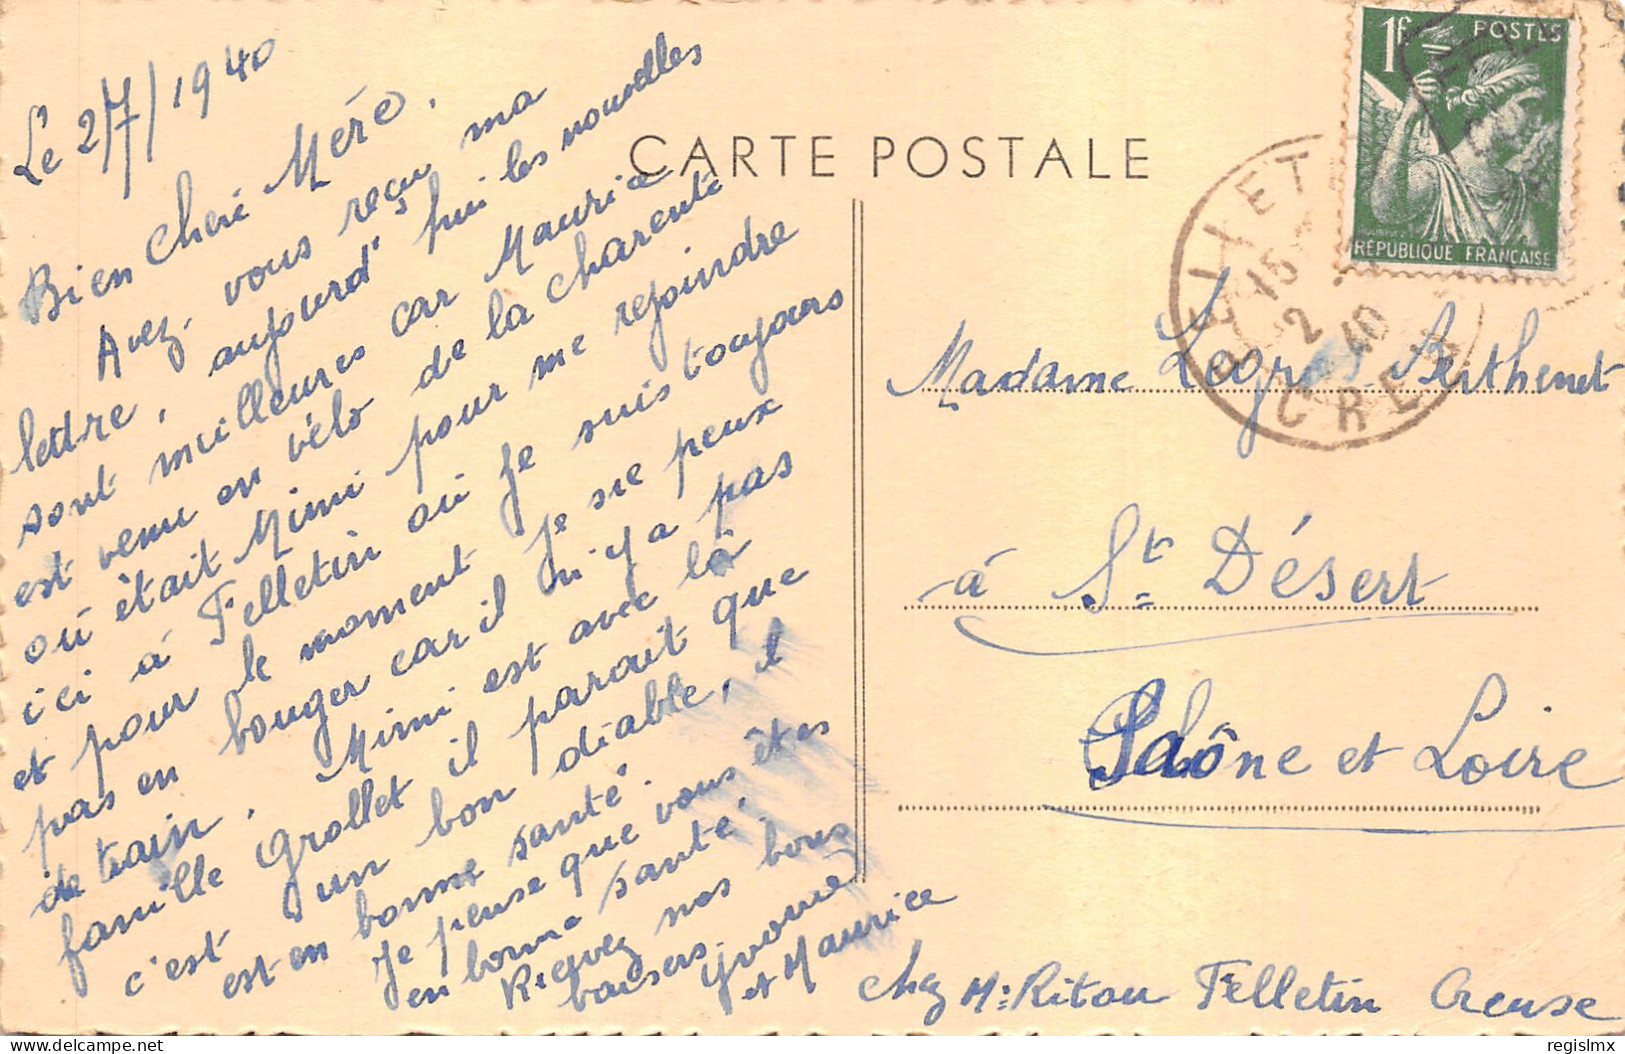 Le 2/7/1940
Bien Cheré Meré.
Avez-vous reçu ma
lettre, aujourd'hui les nouvelles
sont meilleures car Maurice
est venu en vélo de la charente
où était Mimi pour me rejoindre
ici à Felletin où je suis toujours
et pour le moment Je ne peux
pas en bouger car il n'i y a pas
de train. Mimi est avec la
famille Grollet il parait que
c'est un bon diable, il
est en bonne santé.
Je pense que vous êtes
en bonne santé.
Recevez nos bons
baisers. Yvonne
et Maurice
chez Mr Ritou Felletin Creuse
CARTE POSTALE
1f POSTES
RÉPUBLIQUE FRANÇAISE
15
2 40
CRE
Madame Legros-Berthenet
à St Désert
Saône et Loire
© regislmx delcampe.net